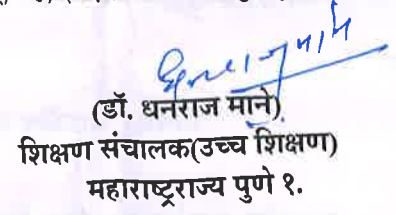 (डॉ. धनराज माने)
शिक्षण संचालक(उच्च शिक्षण)
महाराष्ट्रराज्य पुणे १.